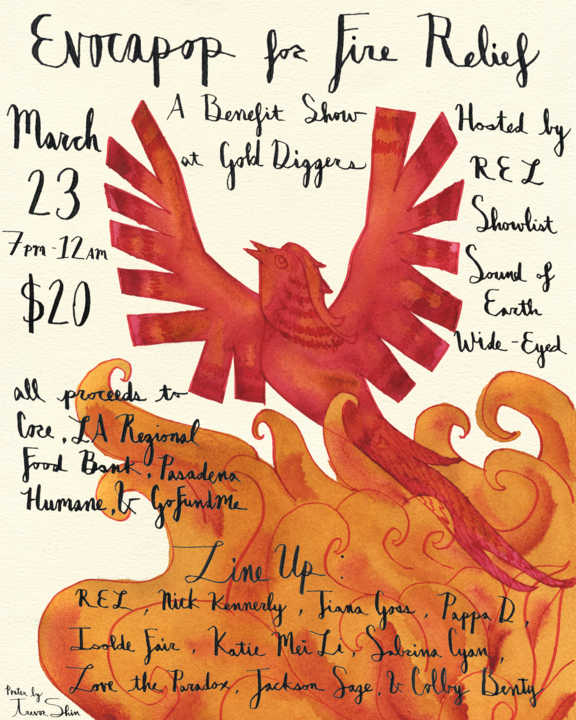 Evocapop for Fire Relief
A Benefit Show
at Gold Diggers
March
23
7pm-12am
$20
Hosted by
REL
Showlist
Sound of
Earth
Wide-Eyed
all proceeds to
Core, LA Regional
Food Bank, Pasadena
Humane, & GoFundMe
Line Up:
REL, Nick Kennerly, Tiana Goss, Pappa D,
Isolde Fair, Katie Mei Li, Sabrina Cyan,
Love the Paradox, Jackson Sage, & Colby Benty
Poster by
Trevor Shin